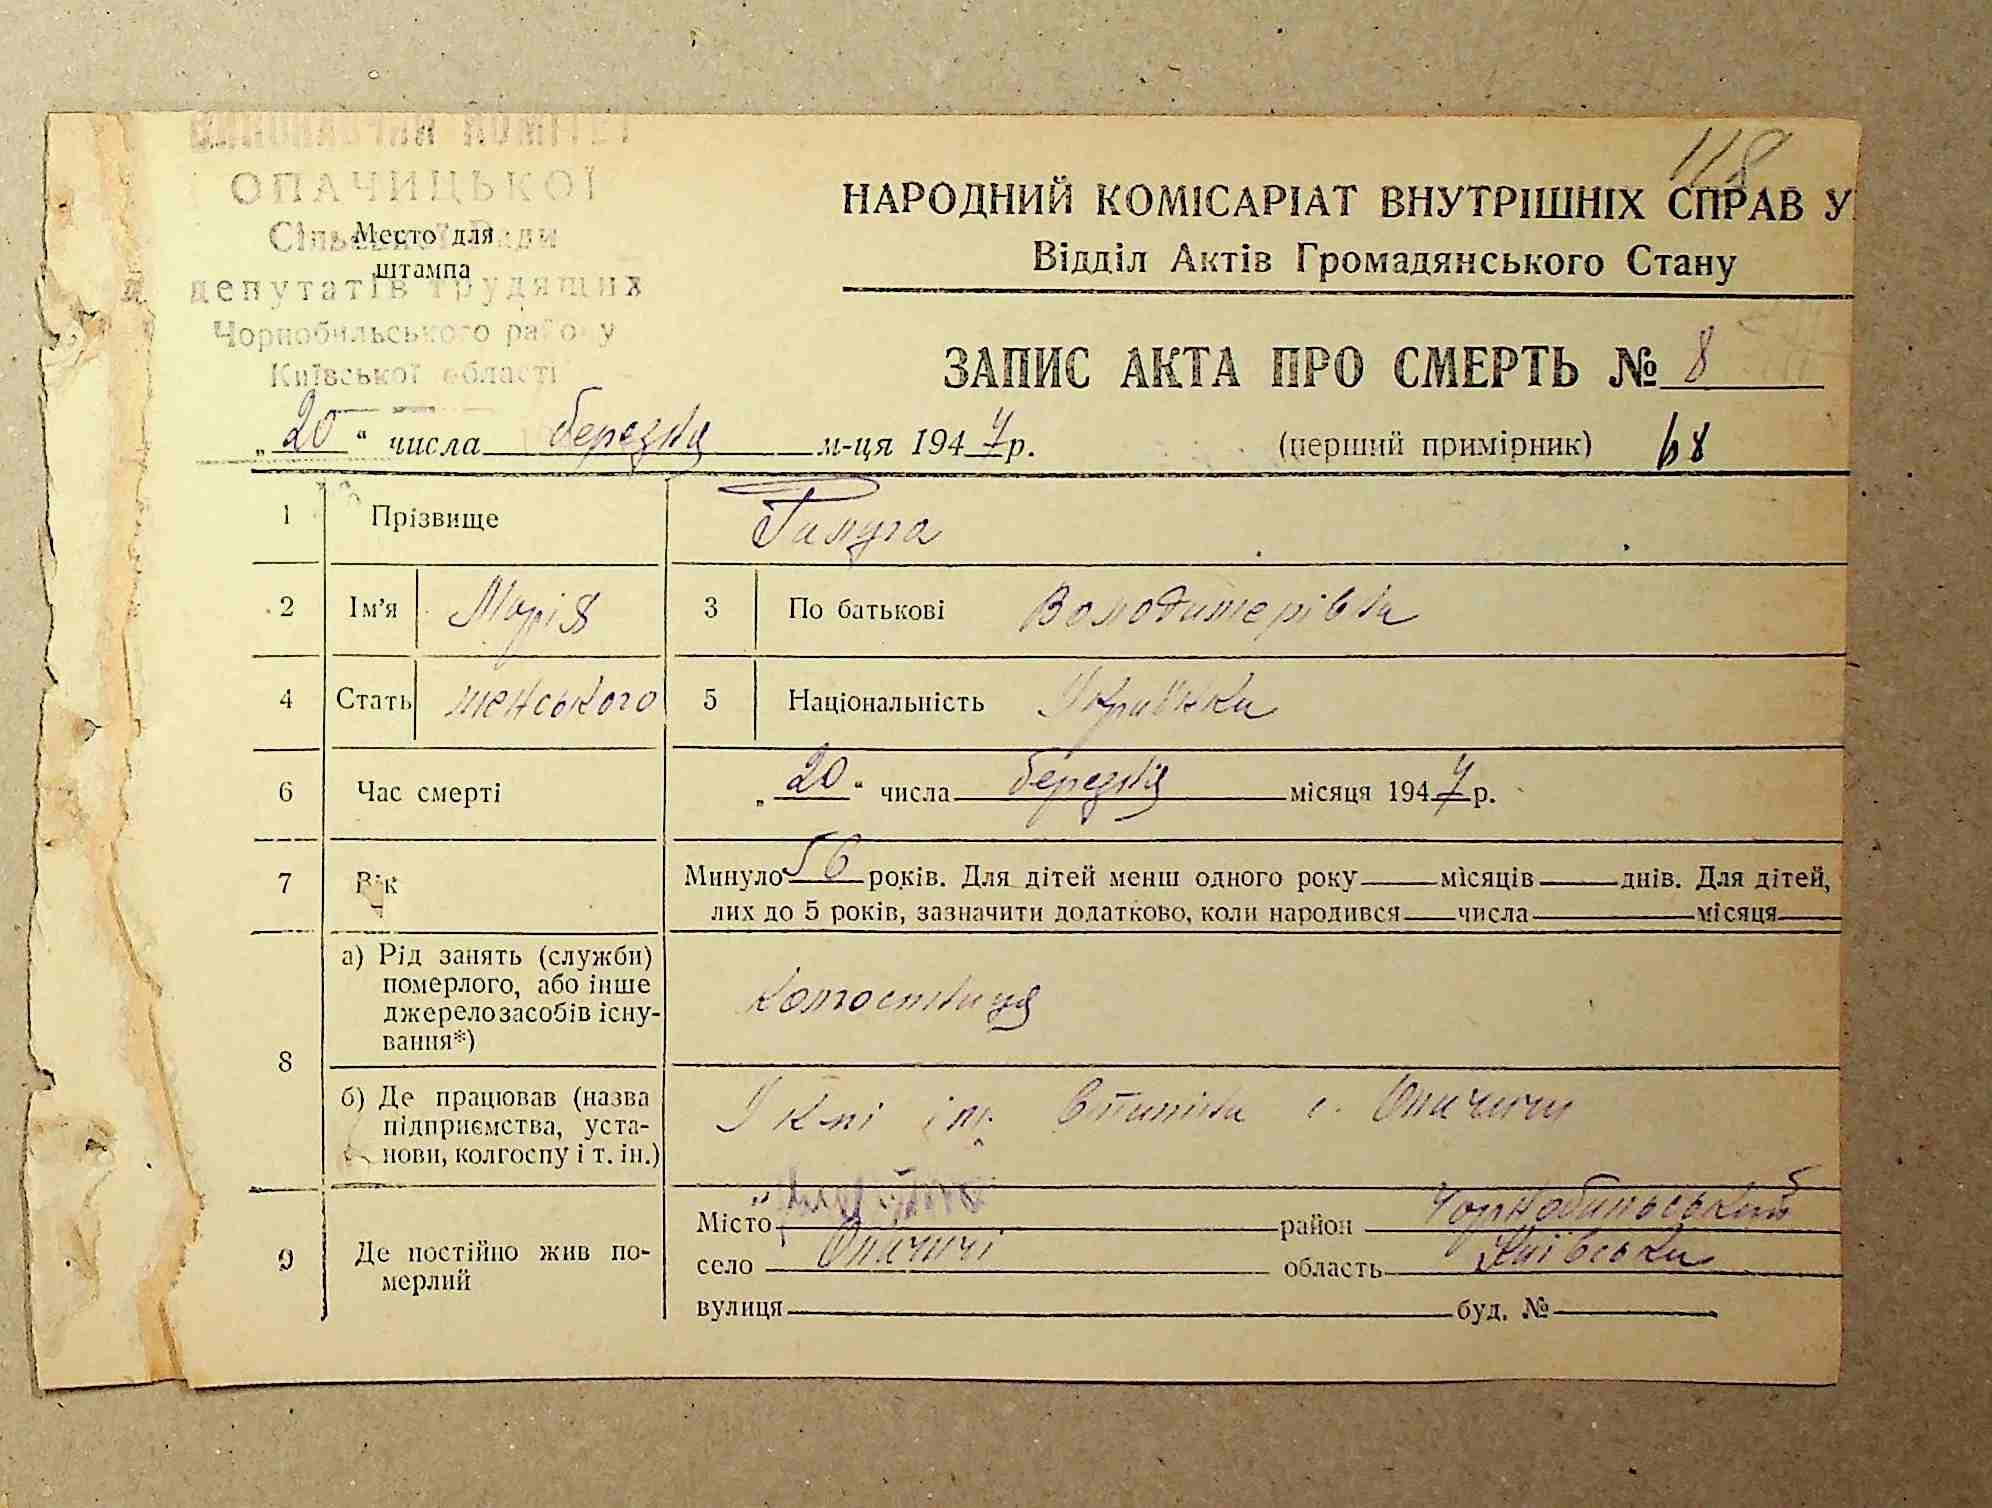 118
ВИКОНАВЧИЙ КОМІТЕТ
ОПАЧИЦЬКОЇ
Сільської Ради
депутатів трудящих
Чорнобильського району
Київської області
Место для
штампа
НАРОДНИЙ КОМІСАРІАТ ВНУТРІШНІХ СПРАВ У
Відділ Актів Громадянського Стану
ЗАПИС АКТА ПРО СМЕРТЬ № 8
„20“ числа березня м-ця 1947 р. (перший примірник) 68
1 Прізвище Галуга
2 Ім'я Марія 3 По батькові Володимерівна
4 Стать женського 5 Національність Українка
6 Час смерті „20“ числа березня місяця 1947 р.
7 Вік Минуло 56 років. Для дітей менш одного року — місяців — днів. Для дітей,
лих до 5 років, зазначити додатково, коли народився — числа — місяця —
8 а) Рід занять (служби)
померлого, або інше
джерело засобів існу-
вання*)
колгоспниця
б) Де працював (назва
підприємства, уста-
нови, колгоспу і т. ін.)
У к-пі ім. Сталіна с. Опачичі
9 Де постійно жив по-
мерлий
Місто район Чорнобильський
село Опачичі область Київська
вулиця буд. №